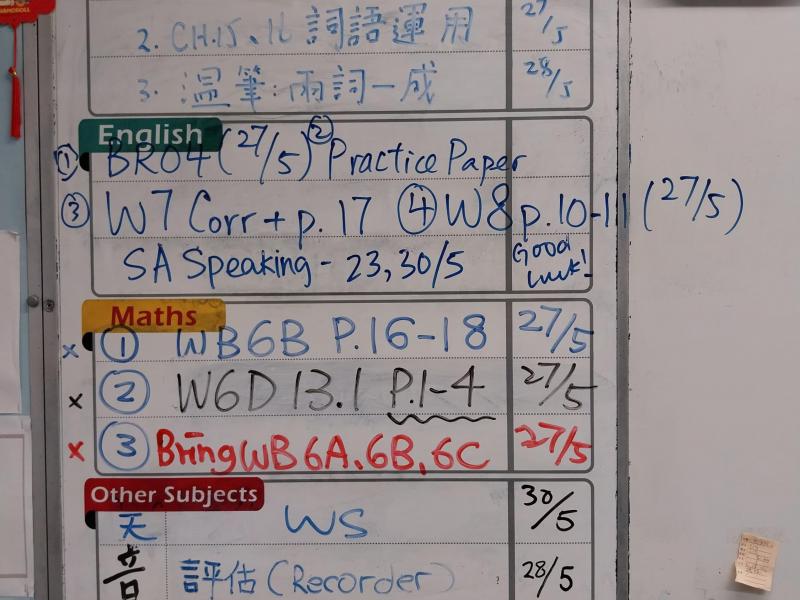 2. CH.15、16 詞語運用 27/5
3. 溫筆:兩詞一成 28/5
English
① BR04 (27/5) ② Practice Paper
③ W7 Corr + p. 17 ④ W8 p.10-11 (27/5)
SA Speaking - 23, 30/5 Good luck!
Maths
× ① WB6B P.16-18 27/5
× ② W6D 13.1 P.1-4 27/5
× ③ Bring WB 6A、6B、6C 27/5
Other Subjects
天 WS 30/5
音 評估 (Recorder) 28/5